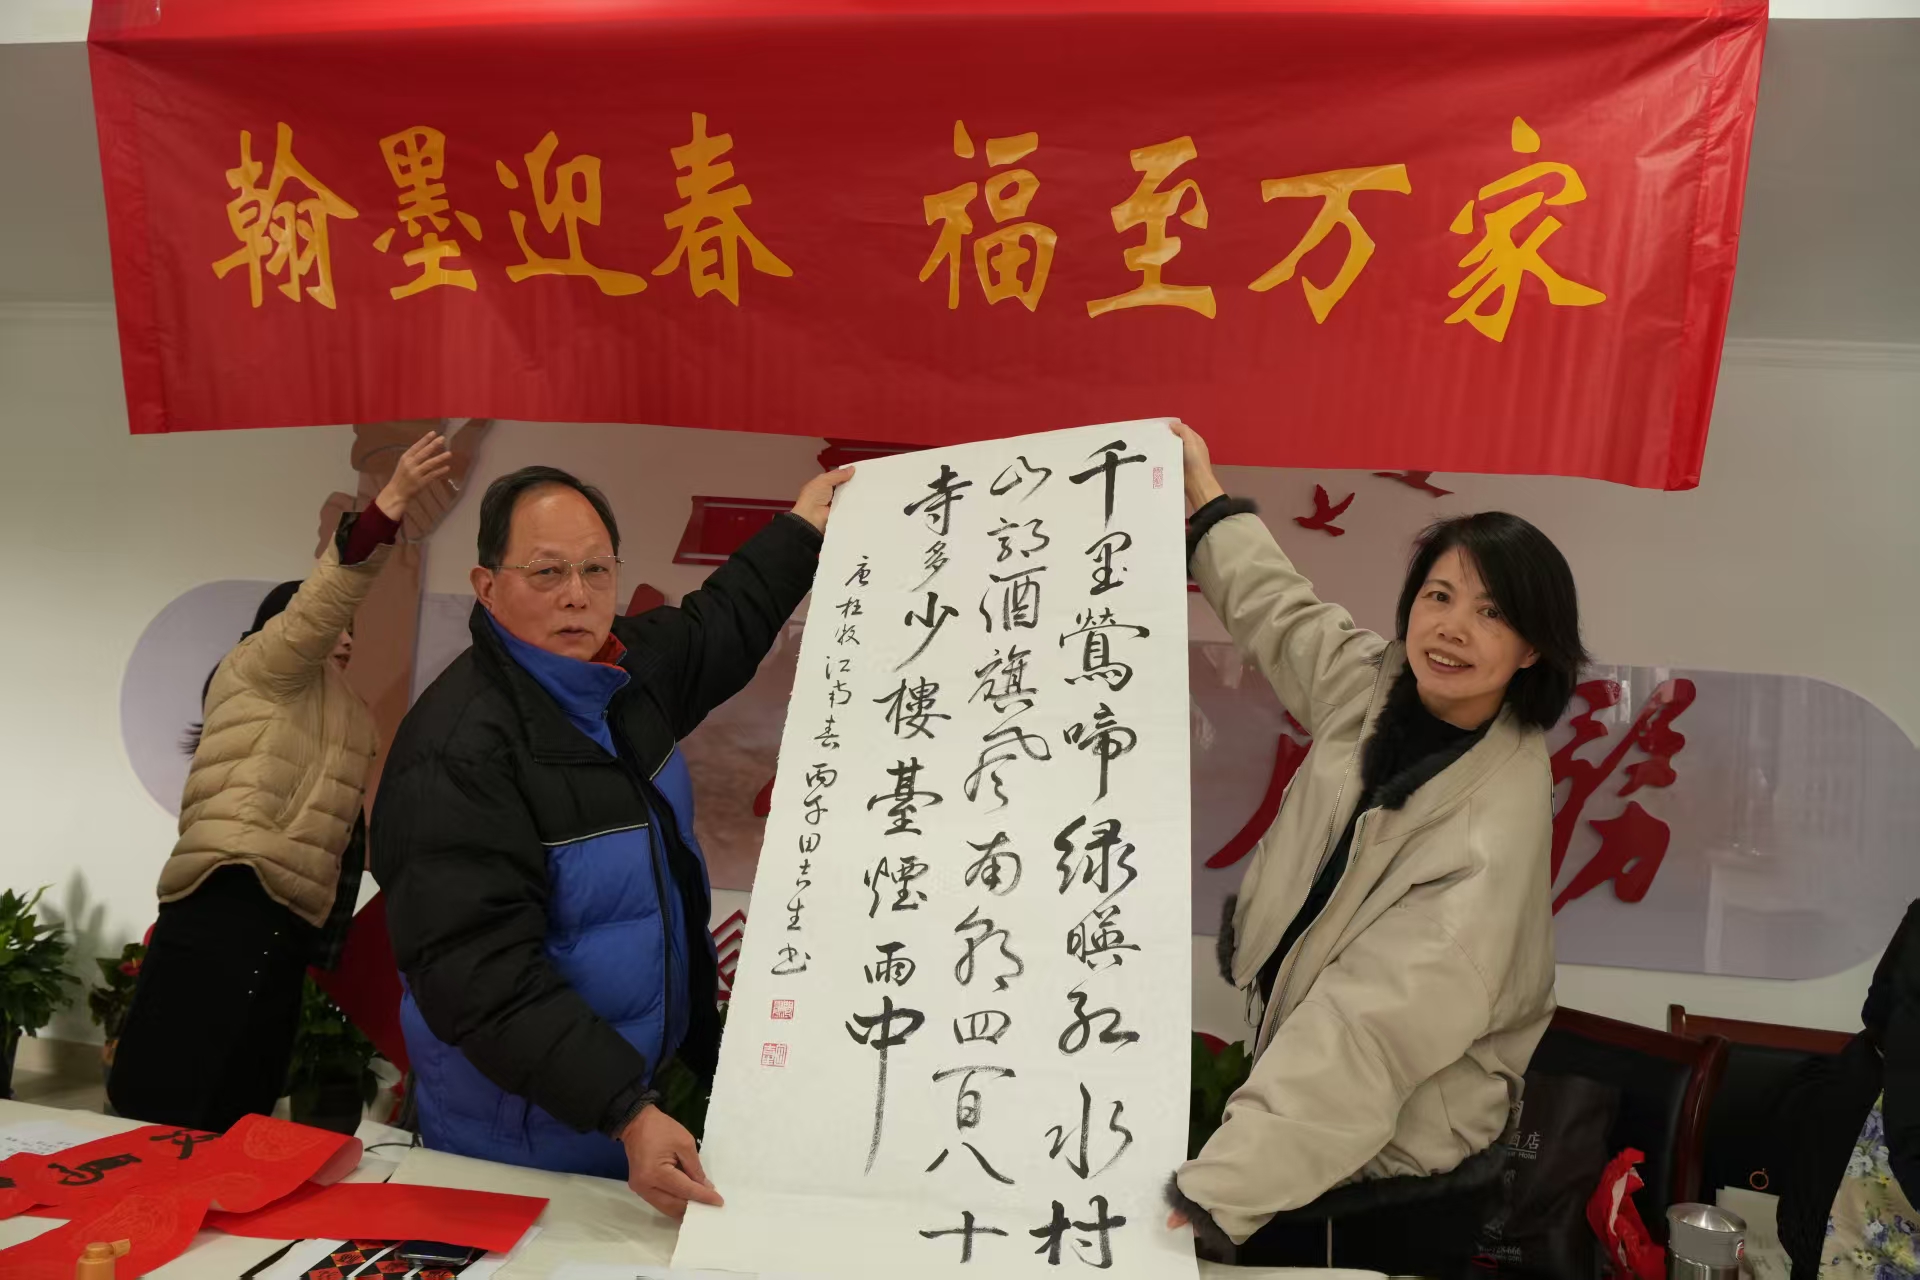 翰墨迎春 福至万家
千里鶯啼绿暎红水村
山郭酒旗风南朝四百八十
寺多少樓臺煙雨中
唐杜牧江南春丙午田吉生书
務
酒店